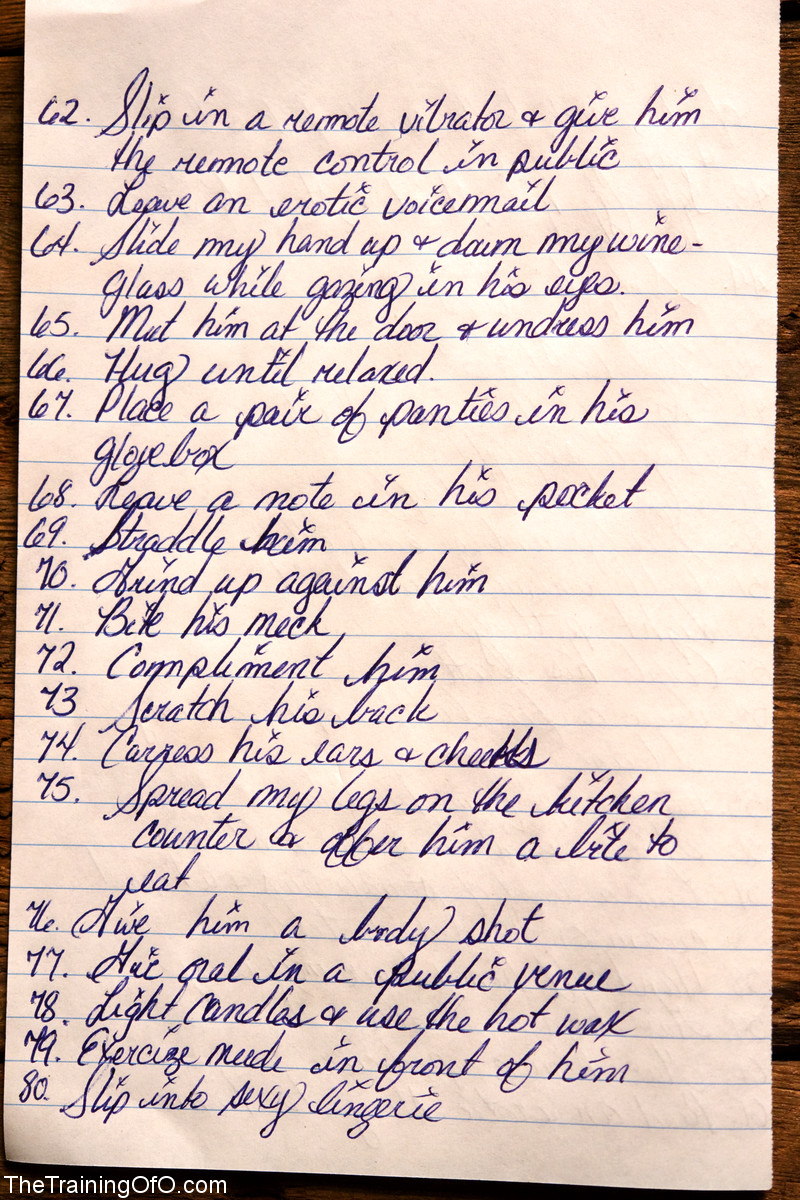 62. Slip in a remote vibrator & give him
the remote control in public
63. Leave an erotic voicemail
64. Slide my hand up & down my wine-
glass while gazing in his eyes.
65. Meet him at the door & undress him
66. Hug until relaxed.
67. Place a pair of panties in his
glovebox
68. Leave a note in his pocket
69. Straddle him
70. Grind up against him
71. Bite his neck
72. Compliment him
73 Scratch his back
74. Carress his ears & cheeks
75. Spread my legs on the kitchen
counter & offer him a bite to
eat
76. Give him a body shot
77. Give oral in a public venue
78. Light candles & use the hot wax
79. Exercize nude in front of him
80. Slip into sexy lingerie
TheTrainingOfO.com